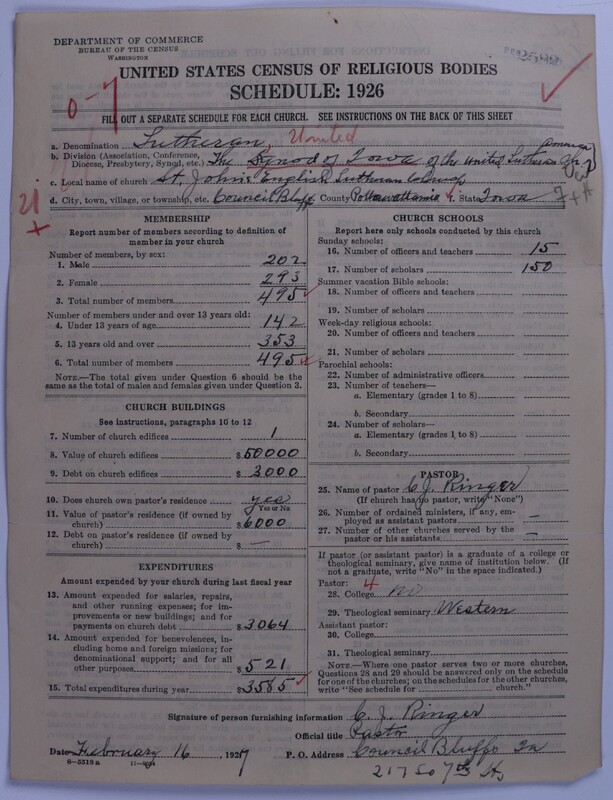 DEPARTMENT OF COMMERCE
BUREAU OF THE CENSUS
WASHINGTON
UNITED STATES CENSUS OF RELIGIOUS BODIES
SCHEDULE: 1926
0-7
FILL OUT A SEPARATE SCHEDULE FOR EACH CHURCH. SEE INSTRUCTIONS ON THE BACK OF THIS SHEET
a. Denomination Lutheran, United
b. Division (Association, Conference, Diocese, Presbytery, Synod, etc.) The Synod of Iowa of the United Lutheran Ch. America
c. Local name of church St. John's English Lutheran Church
d. City, town, village, or township, etc. Council Bluffs County Pottawattamie f. State Iowa
MEMBERSHIP
Report number of members according to definition of
member in your church
Number of members, by sex:
1. Male 202
2. Female 293
3. Total number of members 495
Number of members under and over 13 years old:
4. Under 13 years of age 142
5. 13 years old and over 353
6. Total number of members 495
NOTE.—The total given under Question 6 should be
the same as the total of males and females given under Question 3.
CHURCH BUILDINGS
See instructions, paragraphs 10 to 12
7. Number of church edifices 1
8. Value of church edifices $50000
9. Debt on church edifices $3000
10. Does church own pastor's residence yes
Yes or No
11. Value of pastor's residence (if owned by
church) $6000
12. Debt on pastor's residence (if owned by
church) $ —
EXPENDITURES
Amount expended by your church during last fiscal year
13. Amount expended for salaries, repairs,
and other running expenses; for im-
provements or new buildings; and for
payments on church debt $3064
14. Amount expended for benevolences, in-
cluding home and foreign missions; for
denominational support; and for all
other purposes $521
15. Total expenditures during year $3585
CHURCH SCHOOLS
Report here only schools conducted by this church
Sunday schools:
16. Number of officers and teachers 15
17. Number of scholars 150
Summer vacation Bible schools:
18. Number of officers and teachers
19. Number of scholars
Week-day religious schools:
20. Number of officers and teachers
21. Number of scholars
Parochial schools:
22. Number of administrative officers
23. Number of teachers—
a. Elementary (grades 1 to 8)
b. Secondary
24. Number of scholars—
a. Elementary (grades 1 to 8)
b. Secondary
PASTOR
25. Name of pastor C. J. Ringer
(If church has no pastor, write "None")
26. Number of ordained ministers, if any, em-
ployed as assistant pastors —
27. Number of other churches served by the
pastor or his assistants —
If pastor (or assistant pastor) is a graduate of a college or
theological seminary, give name of institution below. (If
not a graduate, write "No" in the space indicated.)
Pastor: 4
28. College No
29. Theological seminary Western
Assistant pastor:
30. College
31. Theological seminary
NOTE.—Where one pastor serves two or more churches,
Questions 28 and 29 should be answered only on the schedule
for one of the churches; on the schedules for the other churches,
write "See schedule for church."
Signature of person furnishing information C. J. Ringer
Official title Pastor
Date February 16, 1927
P. O. Address Council Bluffs Ia
217 So 7th St,
8-5518a